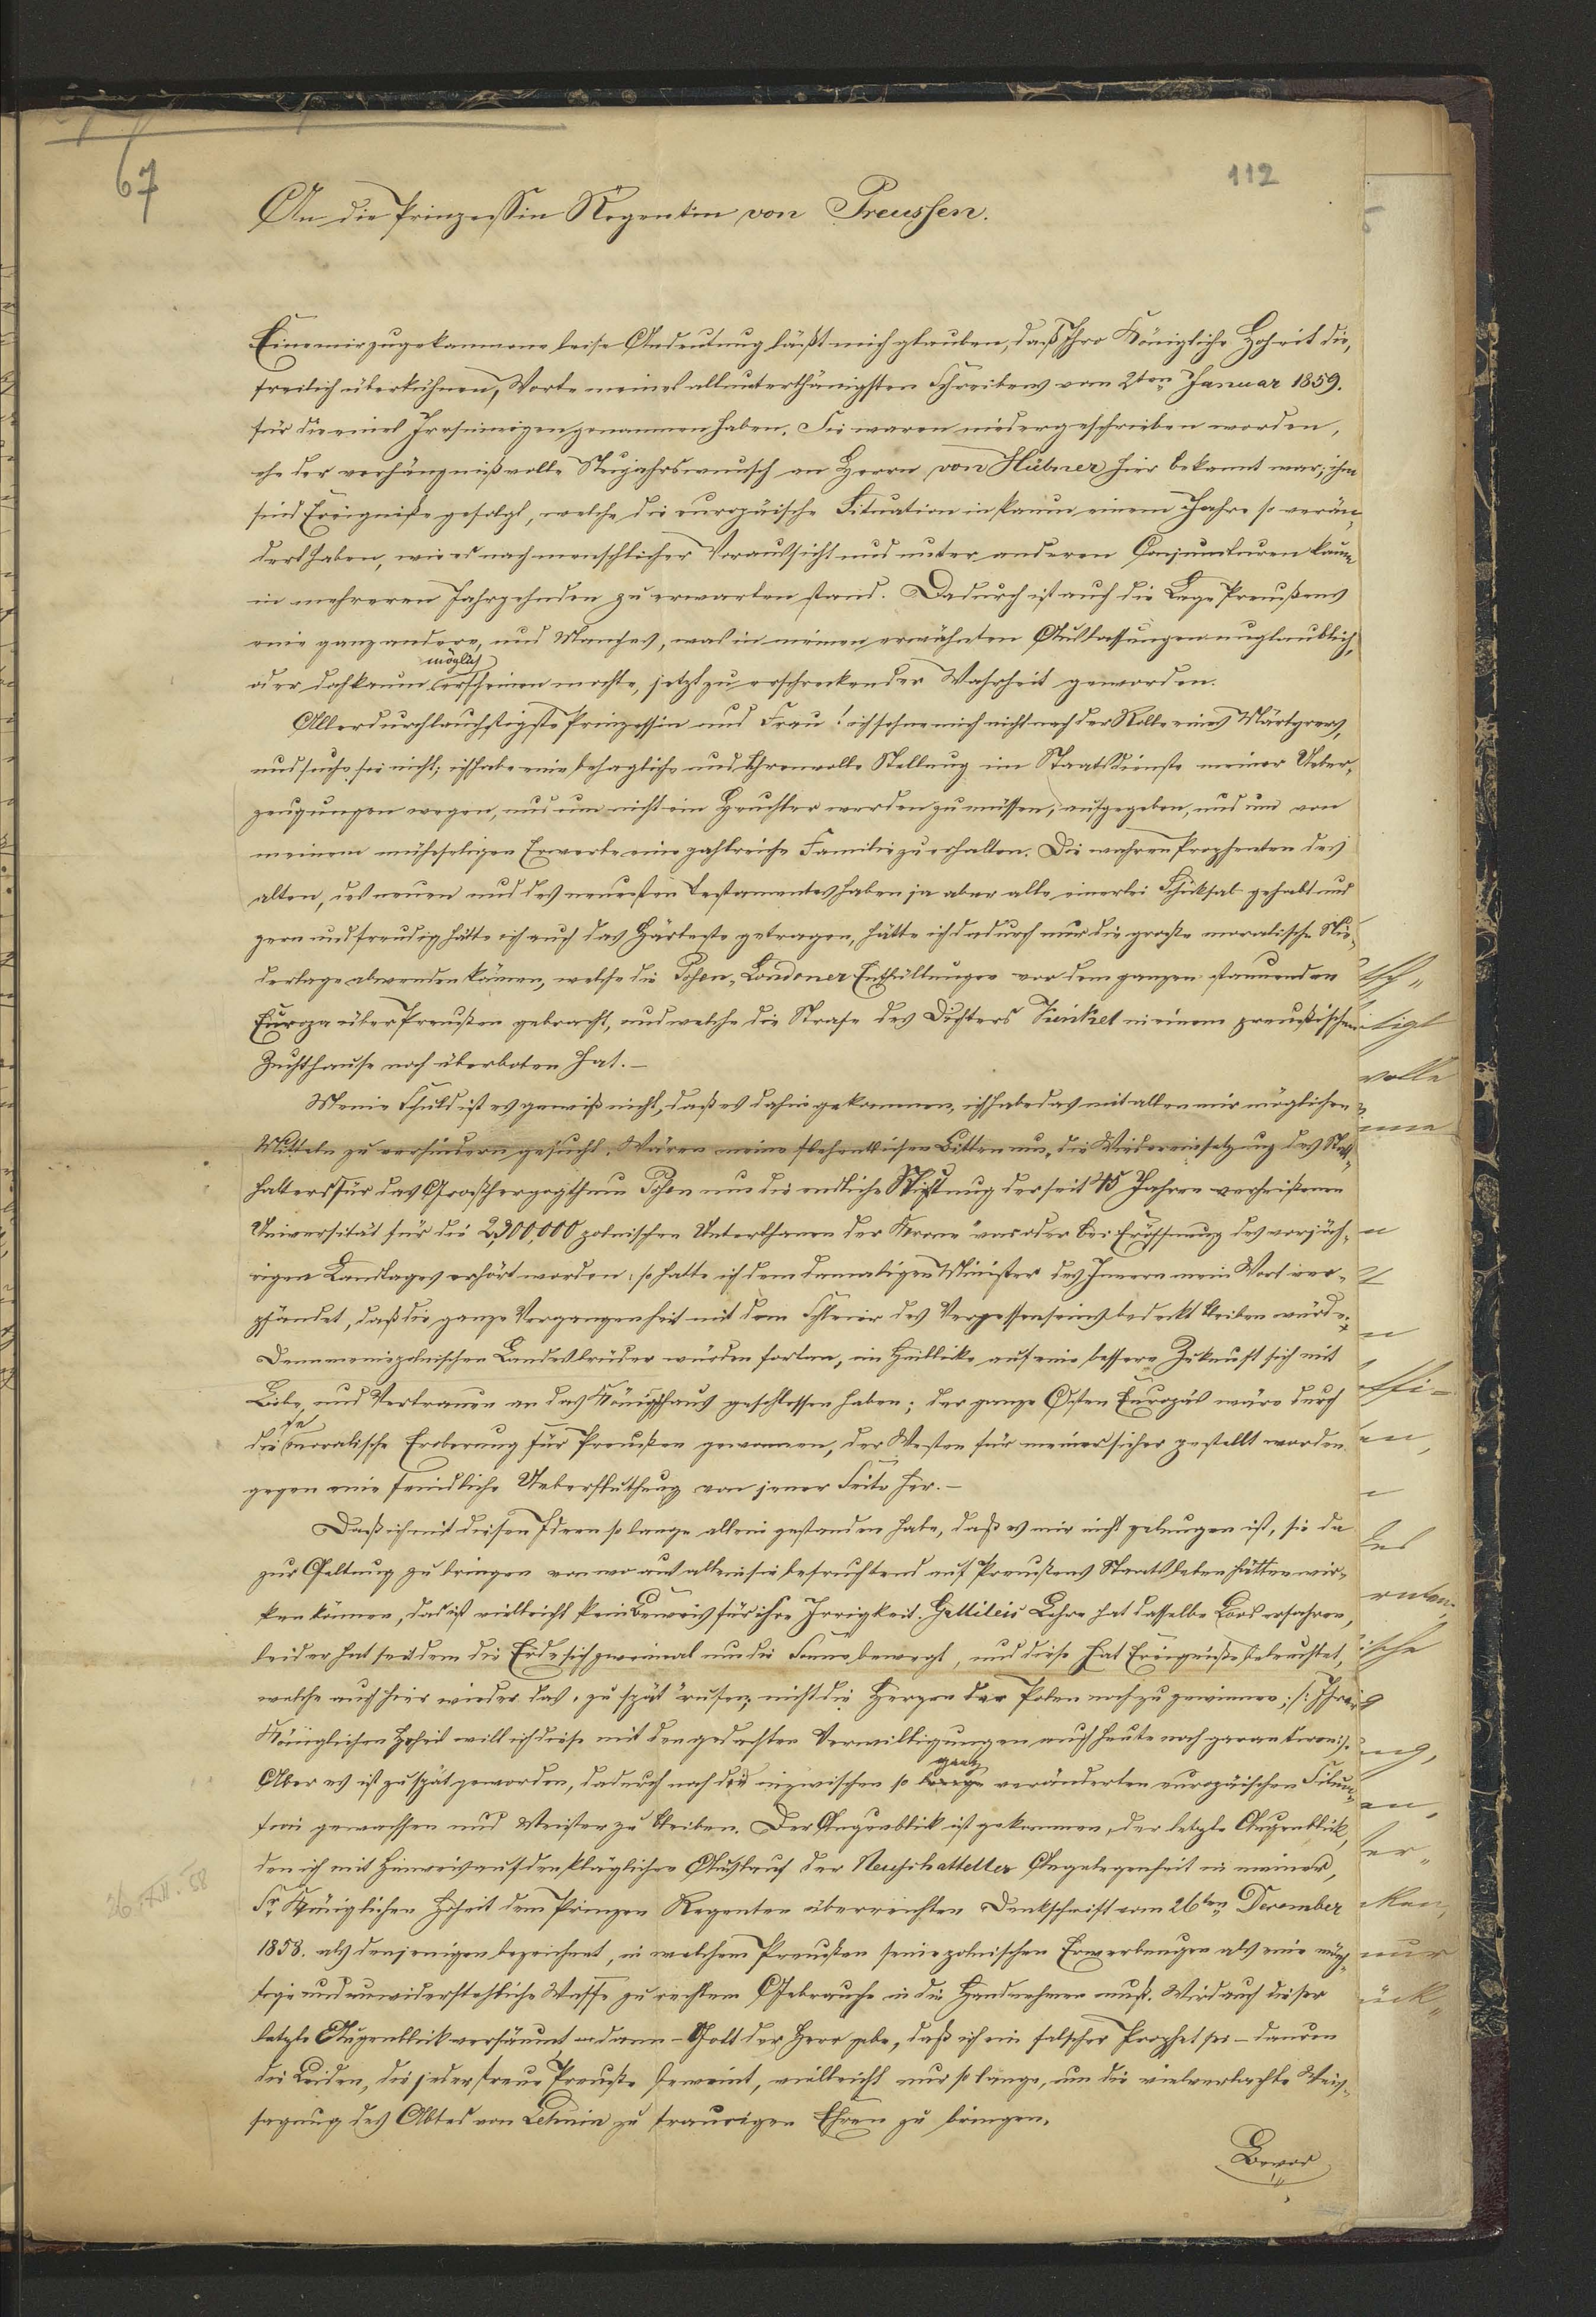 67
112
An die Prinzessin Regentin von Preussen.
Eine mir zugekommene leise Andeutung läßt mich glauben, daß Ihre Königliche Hoheit die,
freilich überkühnen, Worte meines allunterthänigsten Schreibens vom 2ten Januar 1859.
für die eines Irrsinnigen genommen haben. Sie waren niedergeschrieben worden,
ehe der verhängnißvolle Neujahrswunsch an Herrn von Hübner hier bekannt war; ihm
sind Ereigniße gefolgt, welche die europäische Situation in kaum einem Jahre so verän-
dert haben, wie es nach menschlicher Voraussicht und unter anderen Conjuncturen kaum
in mehreren Jahrzehnden zu erwarten stand. Dadurch ist auch die Lage Preußens
eine ganz andere, und Manches, was in meinen erwähnten Auslassungen unglaublich,
möglich
oder doch kaum erscheinen mochte, jetzt zu erschreckender Wahrheit geworden.
Allerdurchlauchtigste Prinzessin und Frau! ich sehne mich nicht nach der Rolle eines Märtyrers,
und suche sie nicht; ich habe eine behagliche und Ehrenvolle Stellung im Staatsdienste meiner Ueber-
zeugungen wegen, und um nicht ein Heuchler werden zu müssen, aufgegeben, und um von
meinem mühseligen Erwerbe eine zahlreiche Familie zu erhalten. Die wahren Propheten des
alten, des neuen und des neuesten Testamentes haben ja aber alle einerlei Schicksal gehabt und
gern und freudig hätte ich auch das Härteste getragen, hätte ich dadurch nur die große moralische Nie-
derlage abwenden können, welche die Posen-Londoner Enthüllungen vor dem ganzen staunenden
Europa über Preußen gebracht, und welche die Strafe des Dichters Kinkel in einem preußischen
Zuchthause noch überboten hat.—
Meine Schuld ist es gewiß nicht, daß es dahin gekommen, ich habe das mit allen mir möglichen
Mitteln zu verhindern gesucht. Wären meine flehentlichen Bitten um „die Wiedereinsetzung des Statt-
halters für das Großherzogthum Posen um die endliche Stiftung der seit 45 Jahren verheißenen
Universität für die 2,300,000 polnischen Unterthanen der Krone" vor oder bei Eröffnung des vorjäh-
rigen Landtages erhört worden: so hatte ich dem damaligen Minister des Innern mein Wort ver-
pfändet, daß die ganze Vergangenheit mit dem Schleier des Vergessenseins bedeckt bleiben würde.
Denn meine polnischen Landesbrüder würden fortan, im Hinblicke auf eine bessere Zukunft sich mit
Liebe und Vertrauen an das Königshaus geschlossen haben; der ganze Osten Europas wäre durch
die moralische Eroberung für Preußen gewonnen, der Westen für immer sicher gestellt worden
gegen eine feindliche Ueberfluthung von jener Seite her.—
Daß ich mit diesen Ideen so lange allein gestanden habe, daß es mir nicht gelungen ist, sie da
zur Geltung zu bringen von wo aus allein sie befruchtend auf Preußens Staatsleben hätten wir-
ken können, das ist vielleicht kein Beweis für ihre Irrigkeit. Gallileis Lehre hat dasselbe Loos erfahren,
leider hat seitdem die Erde sich zweimal um die Sonne bewegt, und diese hat Ereigniße beleuchtet,
welche auch hier wieder das „zu spät" rufen; nicht die Herzen der Polen noch zu gewinnen; /: Ihrer
Königlichen Hoheit will ich diese mit den gedachten Verwilligungen auch heute noch garantiren:/.
ganz
Aber es ist zu spät geworden, dadurch noch der inzwischen so veränderten europäischen Situa-
tion gewachsen und Meister zu bleiben. Der Augenblick ist gekommen, der letzte Augenblick,
den ich mit Hinweis auf den kläglichen Auslauf der Neufchatteller Angelegenheit in meiner,
Sr. Königlichen Hoheit dem Prinzen Regenten überreichten Denkschrift vom 26ten December
26.XII.58
1858. als denjenigen bezeichnet, in welchem Preußen seine polnischen Erwerbungen als eine mäch-
tige und unwiderstehliche Waffe zu rechtem Gebrauche in die Hand nehmen muß. Wird auch dieser
letzte Augenblick versäumt, dann – Gott der Herr gebe, daß ich ein falscher Prophet sei – dauren
die Leiden, die jeder treue Preuße beweint, vielleicht nur so lange, um die vielverlachte Weis-
sagung des Abtes von Lehnin zu traurigen Ehren zu bringen.
Bevor